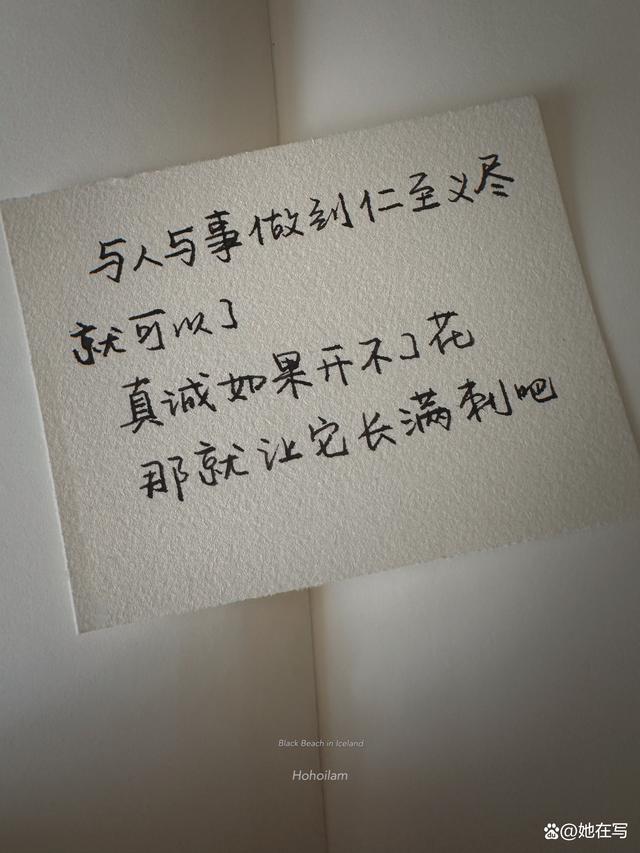 与人与事做到仁至义尽
就可以了
真诚如果开不了花
那就让它长满刺吧
Black Beach in Iceland
Hohoilam
@她在写